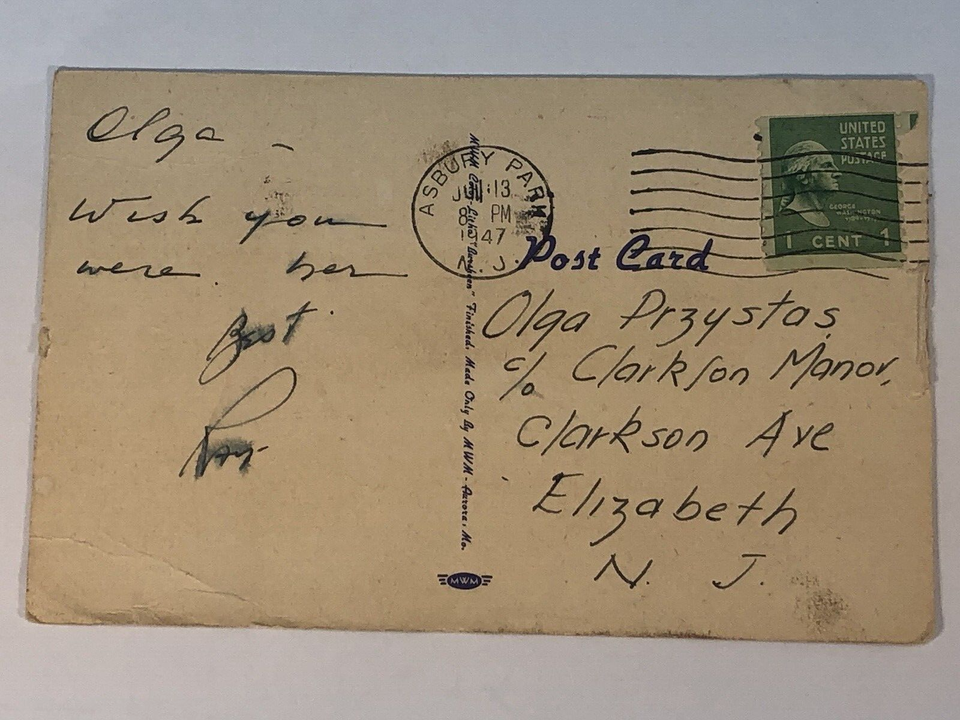 Olga -
Wish you
were her
Best
ASBURY PARK
13
8 PM
1947
N.J.
UNITED
STATES
POSTAGE
GEORGE
WASHINGTON
1 CENT 1
Post Card
Olga Przystas
c/o Clarkson Manor,
Clarkson Ave
Elizabeth
N. J.
Finished. Made Only By MWM - Aurora, Mo.
MWM